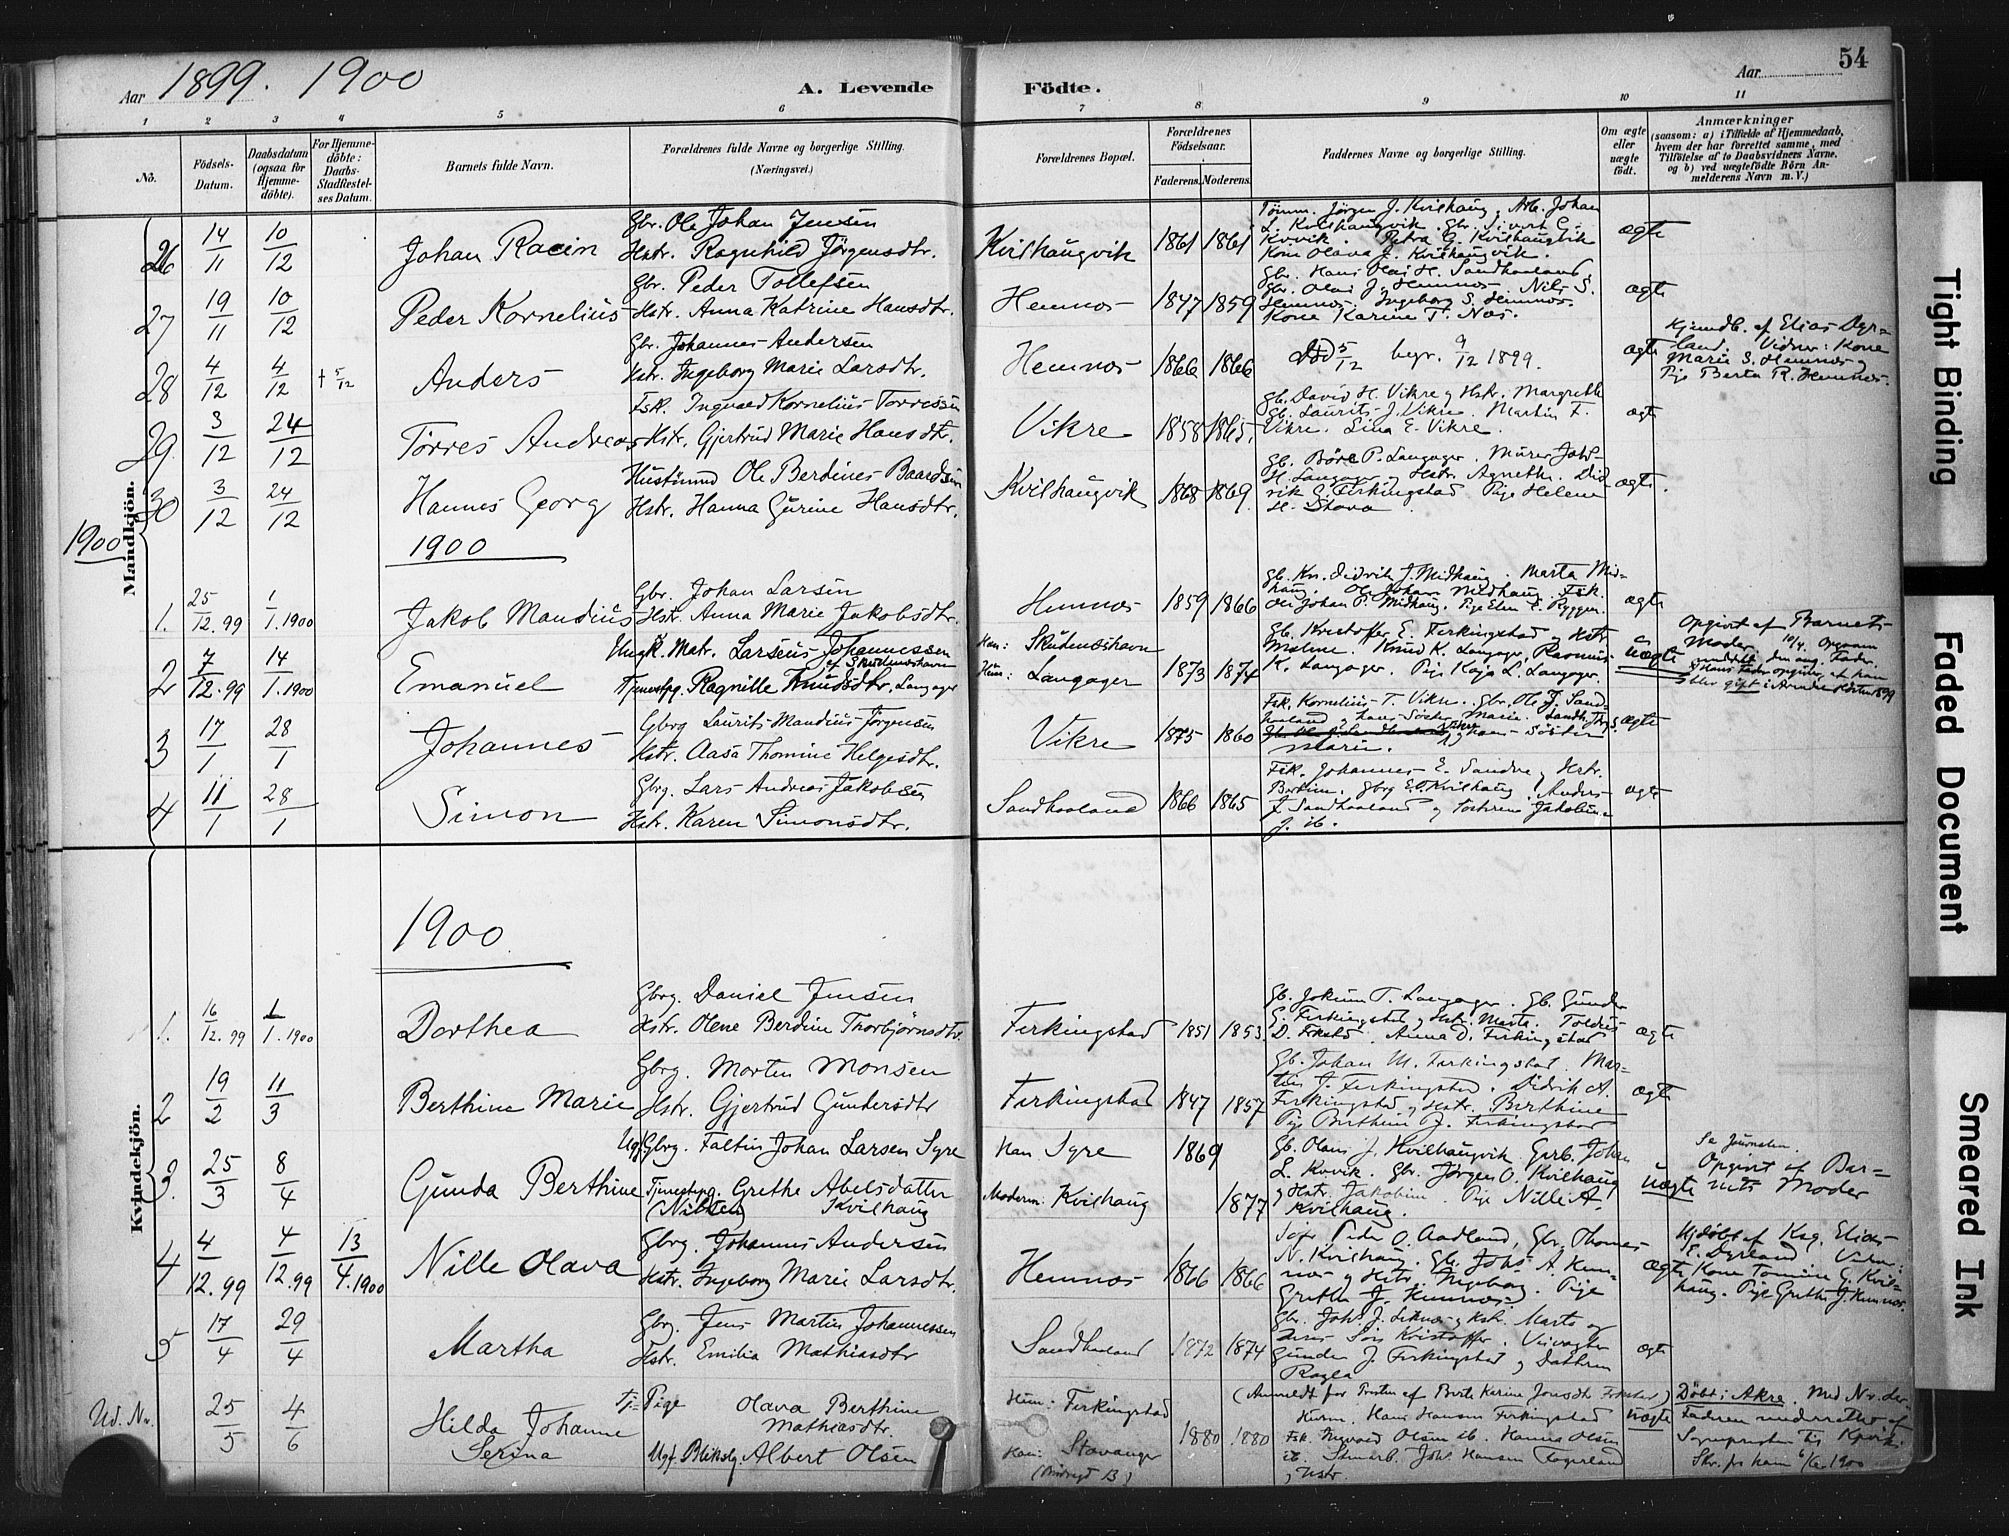 54
Aar 1899. 1900
A. Levende
Födte.
Aar
1 2 3 4 5 6 7 8 9 10 11
No.
Födsels-Datum.
Daabsdatum (ogsaa for Hjemmedöbte).
For Hjemmedöbte: Daabs-Stadfæstelses Datum.
Barnets fulde Navn.
Forældrenes fulde Navne og borgerlige Stilling. (Næringsvei.)
Forældrenes Bopæl.
Forældrenes Födselsaar.
Faderens.
Moderens.
Faddernes Navne og borgerlige Stilling.
Om ægte eller uægte födt.
Anmærkninger
(saasom: a) i Tilfælde af Hjemmedaab, hvem der har forrettet samme, med Tilföielse af to Daabsvidners Navne, og b) ved uægtefödte Börn Anmelderens Navn m. V.)
Mandkjön.
26 14/11 10/12 Johan Racin Gbr. Ole Johan Jensen Hstr. Ragnhild Jörgensdtr. Kvilhaugvik 1861 1861 Tömm. Jørgen J. Kvilhaug, Arb. Johan L. Kvilhaugvik. Gbr. Sivert G. Kvvik. Petra G. Kvilhaugvik Kone Olava J. Kvilhaugvik. ægte
27 19/11 10/12 Peder Kornelius Gbr. Peder Tollefsen Hstr. Anna Katrine Hansdtr. Hemnes 1847 1859 Gbr. Hans Olai H. Sandhaaland, Gbr. Olai J. Hemnes. Nils S. Hemnes. Ingeborg S. Hemnes. Kone Karine T. Nes. ægte
28 4/12 4/12 † 5/12 Anders Gbr. Johannes Andersen Hstr. Ingeborg Marie Larsdtr. Hemnes 1866 1866 Död 5/12 begr. 9/12 1899. ægte Hjemdb. af Elias Dyrland. Vidner: Kone Marie S. Hemnes, Pige Berta R. Hemnes.
29 3/12 24/12 Törres Andreas Fsk. Ingvald Kornelius Torresen Hstr. Gjertrud Marie Hansdtr. Vikre 1858 1865. Gb. David H. Vikre og Hstr. Margrethe Gb. Laurits J. Vikre. Martin F. Vikre. Lina E. Vikre. ægte
30 3/12 24/12 Hannes Georg Husmand Ole Berdines Baardsen Hstr. Hanna Gurine Hansdtr. Kvilhaugvik 1868 1869. Gb. Böre P. Langager. Murer Johs H. Langager og Hstr. Agnethe. Didrik C. Ferkingstad Pige Helene H. Stava. ægte.
1900
1900
1. 25/12.99 1/1.1900 Jakob Mandius Gbr. Johan Larsen Hstr. Anna Marie Jakobsdtr. Hemnes 1859 1866 Gb. Kn. Didrik J. Midhaug. Marta Midhaug. Ole Johan Midhaug. Fsk. Ole Johan P. Midhaug. Pige Elen E. Ryggen. ægte
2 7/12.99 14/1.1900 Emanuel Ungk. Matr. Larseus Johannessen af Skudeneshavn Tjenestpg. Ragnille Knudsdtr. Langager Han: Skudeneshavn Hun: Langager 1873 1874 Gb. Kristoffer E. Ferkingstad og Hstr Maline. Knud K. Langager, Rasmus K. Langager. Pige Kaja L. Langager. uægte Opgivet af Barnets Moder.
3 17/1 28/1 Johannes Gbrg Laurits Mandius Jörgensen Hstr. Aasa Thomine Helgesdtr. Vikre 1875 1860 Fsk. Kornelius T. Vikre. Gbr. Ole J. Sandhaaland og hans Söster Marie. ægte
4 11/1 28/1 Simon Gbrg. Lars Andreas Jakobsen Hstr. Karen Simonsdtr. Sandhaaland 1866 1865 Fsk. Johannes E. Sandve, Hstr. Berdine. Gbrg E. O. Kvilhaug, Anders J. Sandhaaland og Jakobine J. ib. ægte
1900
Kvindekjön.
1. 16/12.99 1/1.1900 Dorthea Gbrg. Daniel Jensen Hstr. Olene Berdine Thorbjörnsdtr. Ferkingstad 1851 1853. Gb. Jokum T. Langager. Gb. Gunder G. Ferkingstad og Hstr. Marta. D. Fkstd. Anna D. Ferkingstad ægte
2 19/2 11/3 Berthine Marie Gbrg. Morten Monsen Hstr. Gjertrud Gundersdtr Ferkingstad 1847 1857 Gb. Johan M. Ferkingstad. Martin J. Ferkingstad. Didrik A. Ferkingstad og Hstr. Berthine Pige Berthine J. Ferkingstad ægte
3. 25/3 8/4 Gunda Berthine Ugf. Gbrg. Faltin Johan Larsen Syre Tjenestepg. Grethe Abelsdatter (Nilsen) Kvilhaug Han Syre Moderen: Kvilhaug 1869 1877 Gb. Olaus J. Kvilhaugvik. Garb. Johan L. Kvvik. Gbr. Jørgen O. Kvilhaug og Hstr. Jakobine. Pige Nille A. Kvilhaug. uægte Se Journalen. Opgivet af Barnets Moder
4 4/12.99 4/12.99 13/4.1900 Nille Olava Gbrg. Johannes Andersen Hstr. Ingeborg Marie Larsdtr. Hemnes 1866 1866 Peder O. Aadland, Gbr. Thomas N. Kvilhaug. Gb. Johs A. Hemnes og Hstr. Ingeborg. Pige Grethe J. Hemnes. ægte Hjdöbt af Ksg. Elias E. Dyrland Vidn: Kone Tomine G. Kvilhaug. Pige Grethe J. Hemnes.
5 17/4 29/4 Martha Gbrg. Jens Martin Johannessen Hstr. Emilia Mathiasdtr Sandhaaland 1872 1874 Gbr. Johs J. og Hstr. Marte og Sön Kristoffer. Gunder J. Ferkingstad og Dathren Ragla ægte
Ud. Nr. 25/5 4/6 Hilda Johanne Serina Tj= Pige Olava Berthine Mathiasdtr. Ugf. Bliksl. Albert Olsen Hun: Ferkingstad Han: Stavanger 1880 1880 (Anmeldt for Presten af Berte Karine Jonsdtr Fkstad) Husm. Hans Hansen Ferkingstad Fsk. Ingvald Olsen ib. Hanna Olsen ib. Johs. Hansen Fagerland og Hstr. uægte Döbt i Akre. Med Nr. der. Faderen underrettet af Sogneprest
Tight Binding
Faded Document
Smeared Ink